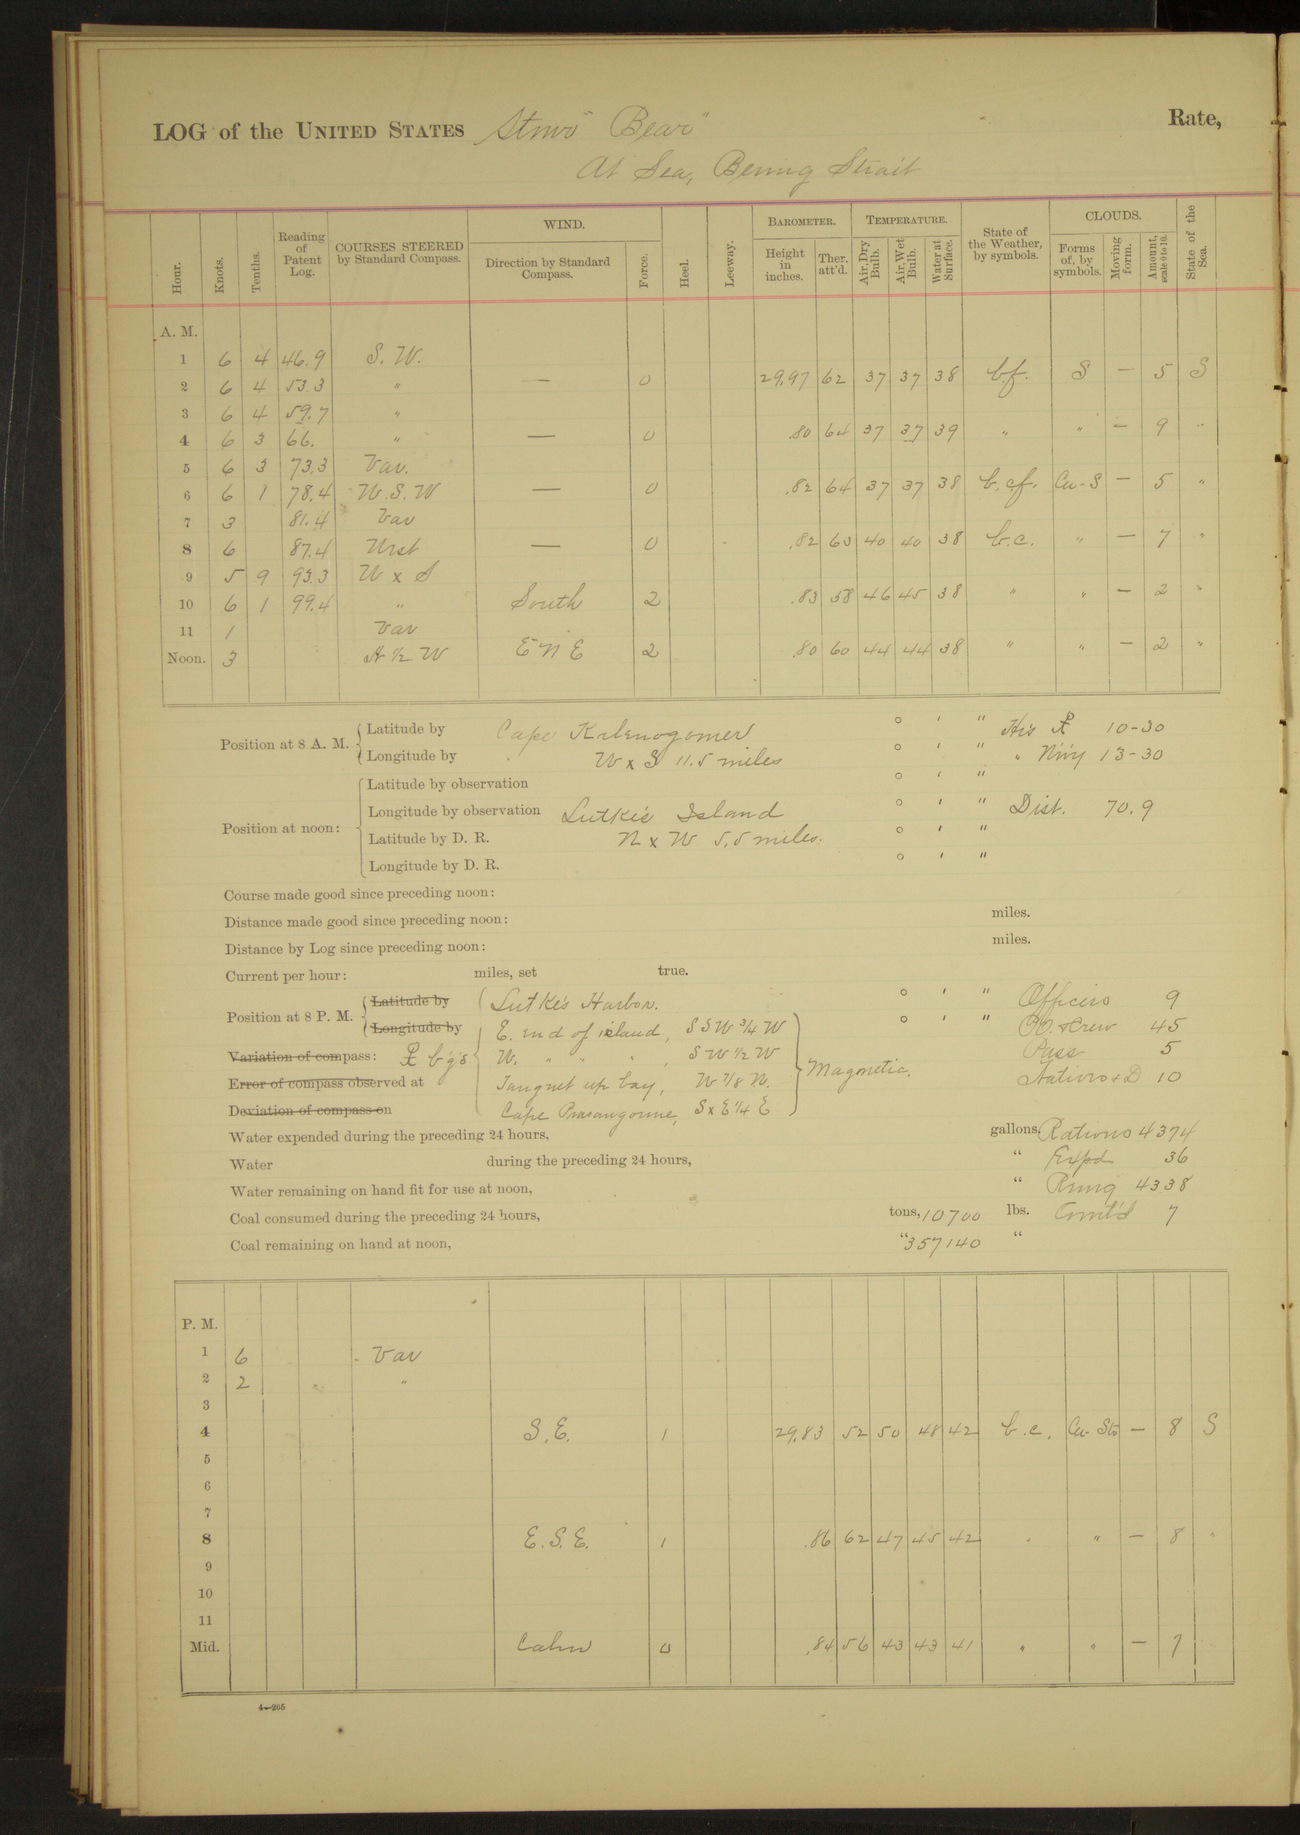 LOG of the UNITED STATES Stmr "Bear" Rate,
At Sea, Bering Strait
Hour. Knots. Tenths. Reading of Patent Log. COURSES STEERED by Standard Compass. WIND. Direction by Standard Compass. Force. Heel. Leeway. BAROMETER. Height in inches. Ther. att'd. TEMPERATURE. Air, Dry Bulb. Air, Wet Bulb. Water at Surface. State of the Weather, by symbols. CLOUDS. Forms of, by symbols. Moving form. Amount, scale 0 to 10. State of the Sea.
A. M.
1 6 4 46.9 S. W.
2 6 4 53.3 " — 0 29.97 62 37 37 38 b.f. S — 5 S
3 6 4 59.7 "
4 6 3 66. " — 0 .80 64 37 37 39 " " — 9 "
5 6 3 73.3 Var.
6 6 1 78.4 W. S. W — 0 .82 64 37 37 38 b.cf. Cu-S — 5 "
7 3 81.4 Var
8 6 87.4 West — 0 .82 60 40 40 38 b.c. " — 7 "
9 5 9 93.3 W x S
10 6 1 99.4 " South 2 .83 58 46 45 38 " " — 2 "
11 1 Var
Noon. 3 ½ W E N E 2 .80 60 44 44 38 " " — 2 "
Position at 8 A. M. Latitude by Cape ° ' " 10-30
Longitude by W x S 11.5 miles ° ' " " 13-30
Position at noon: Latitude by observation ° ' "
Longitude by observation Lutke's Island ° ' " Dist. 70.9
Latitude by D. R. N x W 5.5 miles. ° ' "
Longitude by D. R. ° ' "
Course made good since preceding noon:
Distance made good since preceding noon: miles.
Distance by Log since preceding noon: miles.
Current per hour: miles, set true.
Position at 8 P. M. Latitude by Lutke's Harbor. ° ' " Officers 9
Longitude by E. end of island, S S W ¾ W ° ' " P.O. & Crew 45
Variation of compass: b'g's W. " " " , S W ½ W Magnetic. Pass 5
Error of compass observed at Tangent up bay, W ⅞ N. Natives + D 10
Deviation of compass on Cape S x E ¼ E
Water expended during the preceding 24 hours, gallons. Rations 4374
Water during the preceding 24 hours, " Exp'd 36
Water remaining on hand fit for use at noon, " Rmng 4338
Coal consumed during the preceding 24 hours, tons, 10700 lbs. Comt'd 7
Coal remaining on hand at noon, " 357140 "
P. M.
1 6 Var
2 2 "
3
4 S. E. 1 29.83 52 50 48 42 b.c. Cu-Str — 8 S
5
6
7
8 E. S. E. 1 .86 62 47 45 42 " " — 8 "
9
10
11
Mid. Calm 0 .84 56 43 43 41 " " — 7
4—265